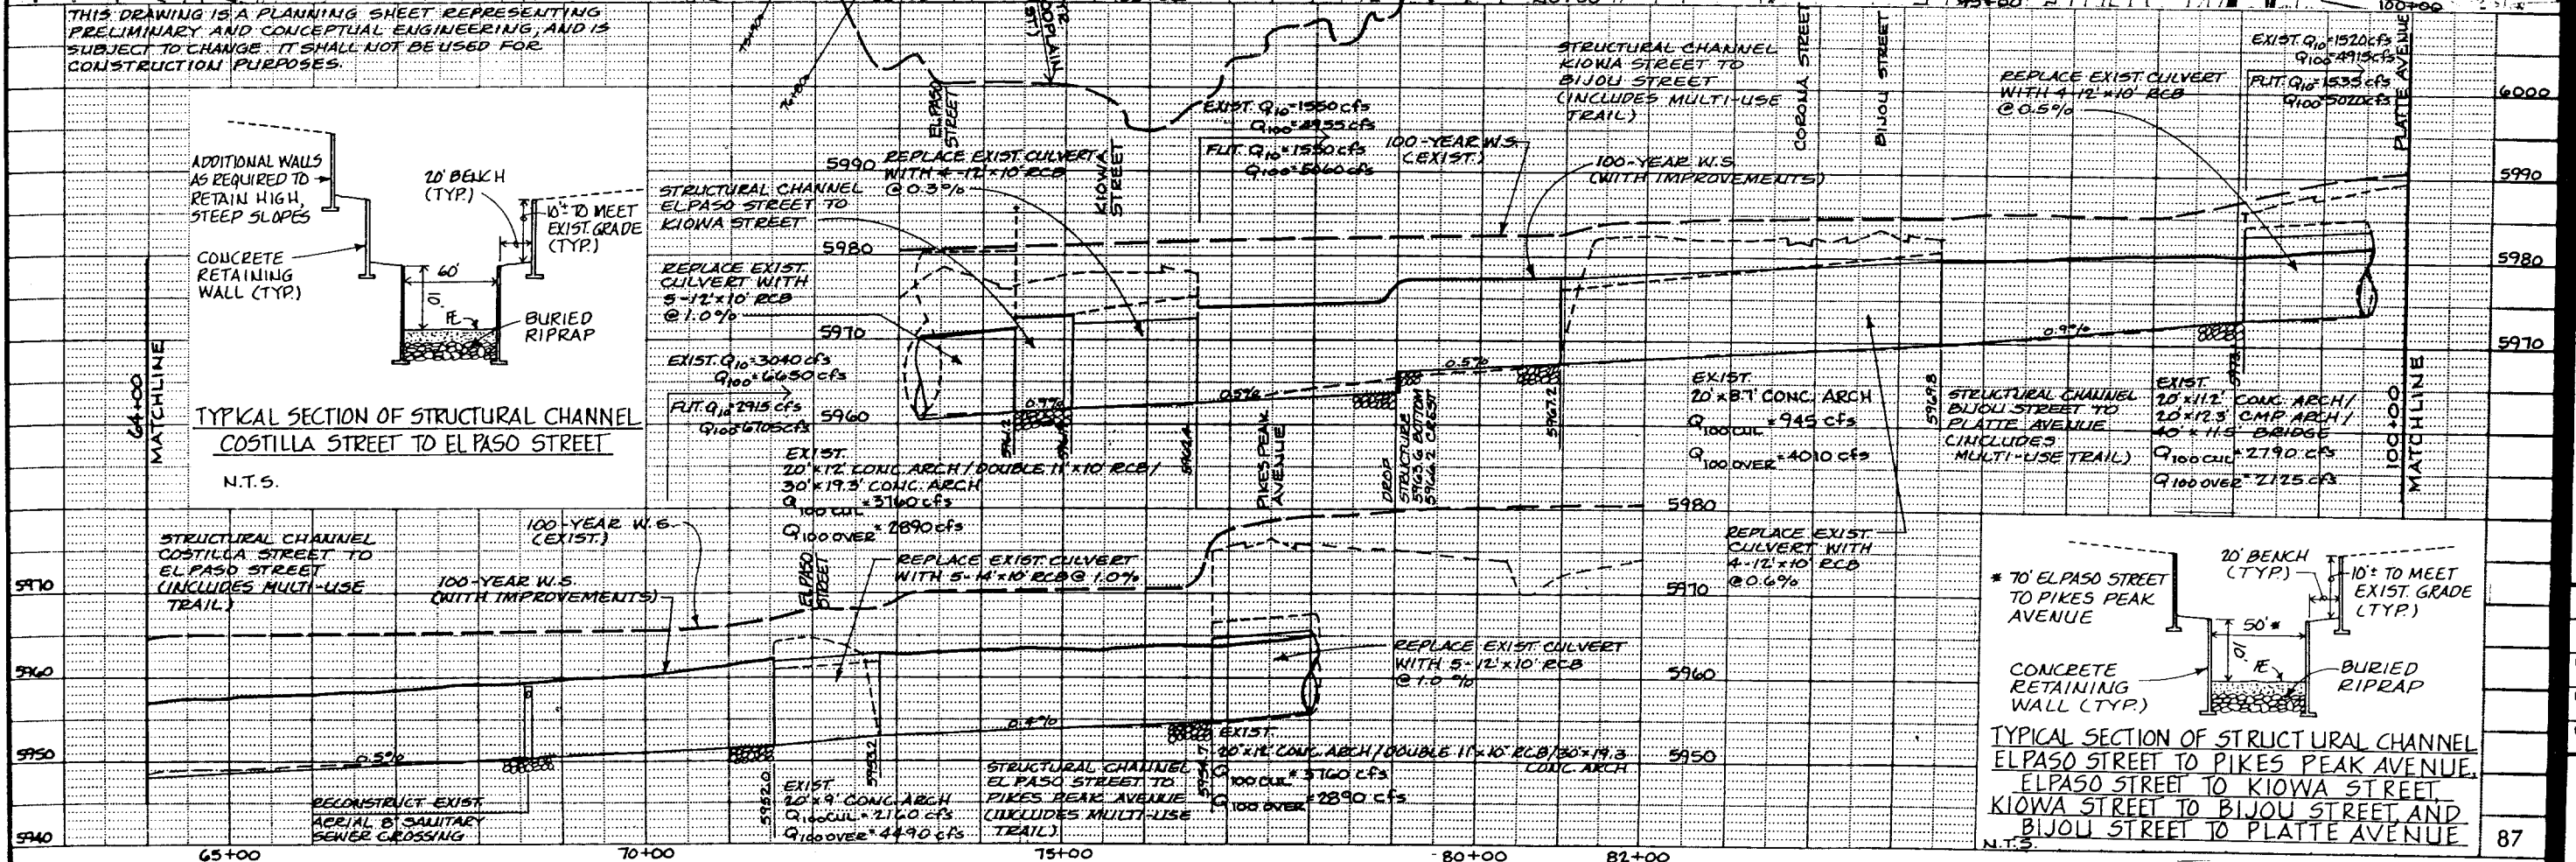 THIS DRAWING IS A PLANNING SHEET REPRESENTING
PRELIMINARY AND CONCEPTUAL ENGINEERING, AND IS
SUBJECT TO CHANGE. IT SHALL NOT BE USED FOR
CONSTRUCTION PURPOSES.
ADDITIONAL WALLS
AS REQUIRED TO
RETAIN HIGH,
STEEP SLOPES
20' BENCH
(TYP.)
10'± TO MEET
EXIST. GRADE
(TYP.)
CONCRETE
RETAINING
WALL (TYP.)
60'
10'
BURIED
RIPRAP
TYPICAL SECTION OF STRUCTURAL CHANNEL
COSTILLA STREET TO EL PASO STREET
N.T.S.
64+00
MATCHLINE
75+00
EL PASO
STREET
KIOWA
STREET
5990
5980
5970
5960
REPLACE EXIST. CULVERT
WITH 4-12'x10' RCB
@ 0.3%
STRUCTURAL CHANNEL
ELPASO STREET TO
KIOWA STREET
REPLACE EXIST.
CULVERT WITH
5-12'x10' RCB
@ 1.0%
EXIST. Q10=3040 cfs
Q100=6650 cfs
FUT. Q10=2915 cfs
Q100=6705 cfs
EXIST. Q10=1550 cfs
Q100=4955 cfs
FUT. Q10=1550 cfs
Q100=5060 cfs
100-YEAR W.S.
(EXIST.)
STRUCTURAL CHANNEL
KIOWA STREET TO
BIJOU STREET
(INCLUDES MULTI-USE
TRAIL)
100-YEAR W.S.
(WITH IMPROVEMENTS)
CORONA STREET
BIJOU STREET
REPLACE EXIST. CULVERT
WITH 4-12'x10' RCB
@ 0.5%
EXIST. Q10=1520cfs
Q100=4915cfs
FUT. Q10=1535 cfs
Q100=5020cfs
PLATTE AVENUE
100+00
6000
5990
5980
5970
0.9%
0.5%
0.5%
0.9%
PIKES PEAK
AVENUE
DROP
STRUCTURE
5963.6 BOTTOM
5966.2 CREST
5967.2
5969.8
EXIST.
20'x12' CONC. ARCH / DOUBLE 11'x10' RCB /
30'x19.3' CONC. ARCH
Q100 CUL = 3760 cfs
Q100 OVER = 2890 cfs
EXIST.
20'x8.7' CONC. ARCH
Q100 CUL = 945 cfs
Q100 OVER = 4010 cfs
STRUCTURAL CHANNEL
BIJOU STREET TO
PLATTE AVENUE
(INCLUDES
MULTI-USE TRAIL)
EXIST.
20'x11.2' CONC. ARCH /
20'x12.3' CMP ARCH /
40'x11.5' BRIDGE
Q100 CUL = 2790 cfs
Q100 OVER = 2125 cfs
100+00
MATCHLINE
STRUCTURAL CHANNEL
COSTILLA STREET TO
EL PASO STREET
(INCLUDES MULTI-USE
TRAIL)
100-YEAR W.S.
(EXIST.)
100-YEAR W.S.
(WITH IMPROVEMENTS)
EL PASO
STREET
REPLACE EXIST. CULVERT
WITH 5-14'x10' RCB @ 1.0%
5980
5970
5960
5950
REPLACE EXIST. CULVERT
WITH 5-12'x10' RCB
@ 1.0%
REPLACE EXIST.
CULVERT WITH
4-12'x10' RCB
@ 0.6%
5970
5960
5950
5940
0.5%
0.4%
RECONSTRUCT EXIST.
AERIAL 8" SANITARY
SEWER CROSSING
5952.0
5953.2
5954.7
EXIST.
20'x9' CONC. ARCH
Q100 CUL = 2160 cfs
Q100 OVER = 4490 cfs
STRUCTURAL CHANNEL
EL PASO STREET TO
PIKES PEAK AVENUE
(INCLUDES MULTI-USE
TRAIL)
EXIST.
20'x12' CONC. ARCH / DOUBLE 11'x10' RCB/30'x19.3
CONC. ARCH
Q100 CUL = 3760 cfs
Q100 OVER = 2890 cfs
* 70' EL PASO STREET
TO PIKES PEAK
AVENUE
20' BENCH
(TYP.)
10'± TO MEET
EXIST. GRADE
(TYP.)
50'*
10'
CONCRETE
RETAINING
WALL (TYP.)
BURIED
RIPRAP
TYPICAL SECTION OF STRUCTURAL CHANNEL
ELPASO STREET TO PIKES PEAK AVENUE,
ELPASO STREET TO KIOWA STREET,
KIOWA STREET TO BIJOU STREET, AND
BIJOU STREET TO PLATTE AVENUE
N.T.S.
87
65+00
70+00
75+00
80+00
82+00